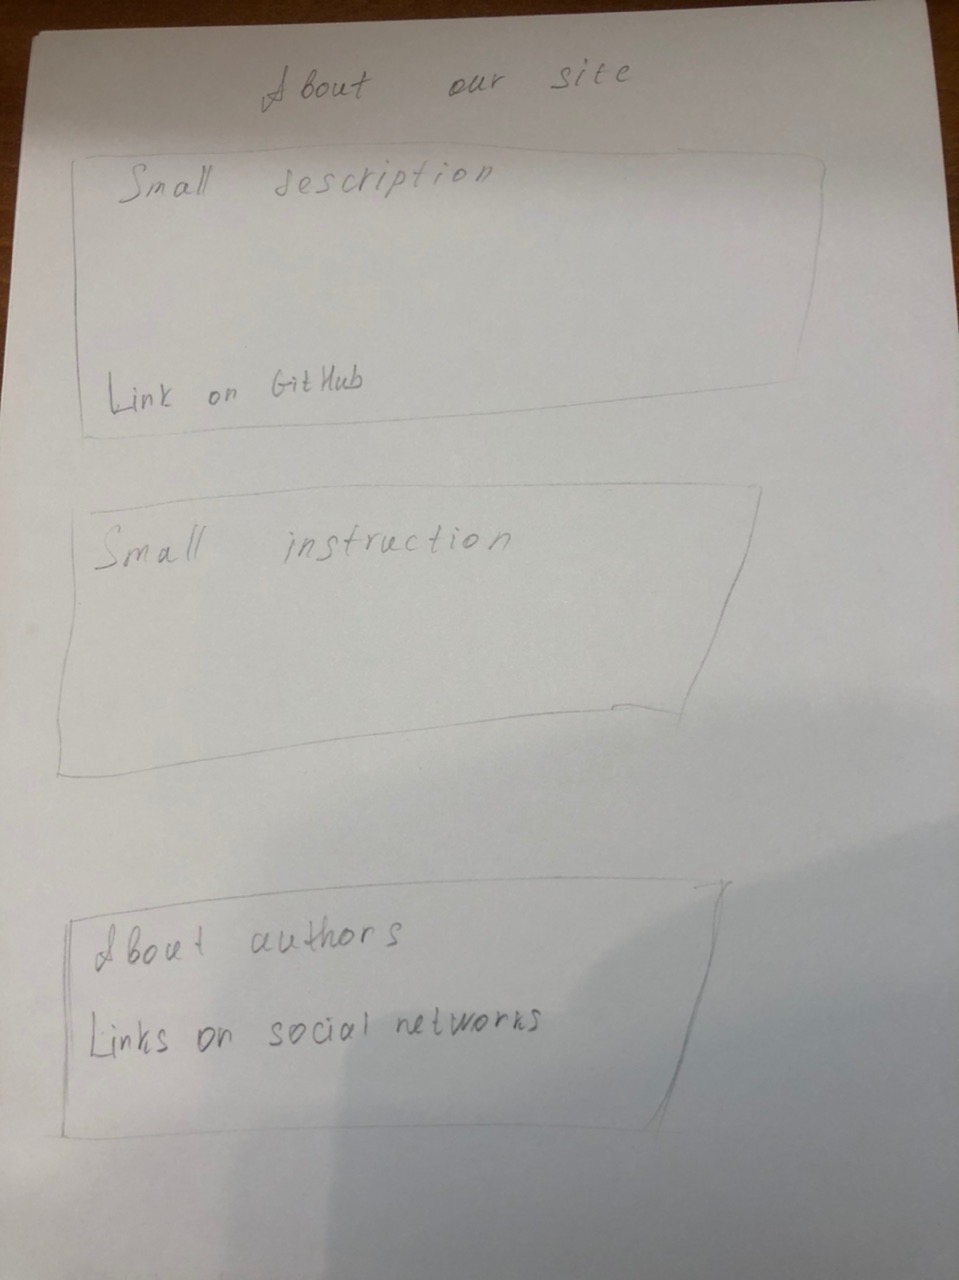 About our site
Small description
Link on GitHub
Small instruction
About authors
Links on social networks